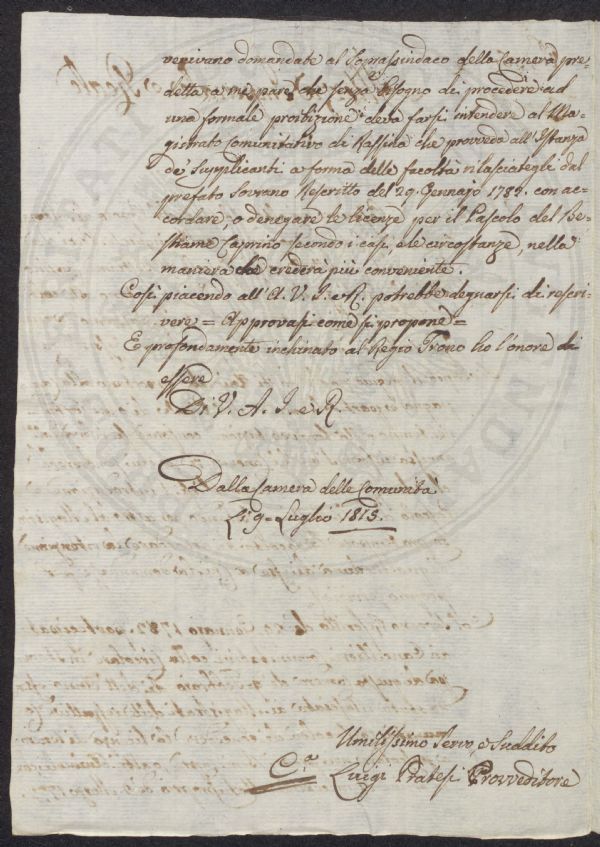 venivano domandate al Soprassindaco della Camera pre-
detta a me pare che senza bisogno di procedere ad
una formale proibizione deva farsi intendere al Ma-
gistrato Comunitativo di Rassina che provveda all'Istanza
de' Supplicanti a forma delle facoltà rilasciategli dal
prefato Sovrano Rescritto del 29. Gennajo 1785. con ac-
cordare, o denegare le licenze per il Pascolo del Be-
stiame Caprino secondo i casi, e le circostanze, nella
maniera che crederà più conveniente.
Così piacendo all'A. V. I. e R. potrebbe degnarsi di rescri-
vere = Approvasi come si propone =
E profondamente inchinato al Regio Trono ho l'onore di
essere
Di V. A. I. e R.
Dalla Camera delle Comunità
Li 9. Luglio 1815.
Umilissimo Servo, e Suddito
Luigi Pratesi Provveditore